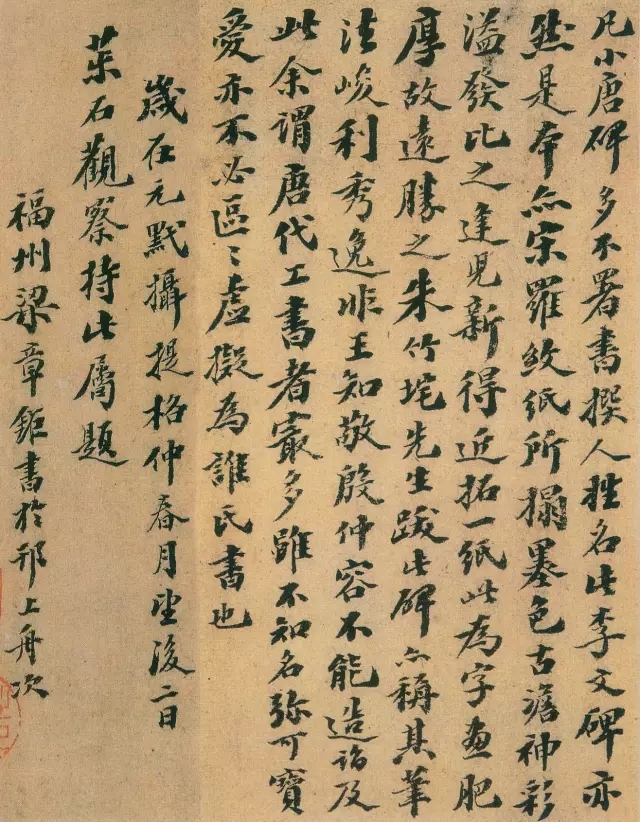 凡小唐碑多不署書撰人姓名此李文碑亦
然是本亦宋羅紋紙所搨墨色古澹神彩
溢發比之逢兒新得近拓一紙此為字畫肥
厚故遠勝之朱竹垞先生跋此碑亦稱其筆
法峻利秀逸非王知敬殷仲容不能造詣及
此余謂唐代工書者冣多雖不知名弥可寶
愛亦不必區〻虛擬為誰氏書也
歲在元黓攝提格仲春月望後二日
茮石觀察持此屬題
福州梁章鉅書於邗上舟次